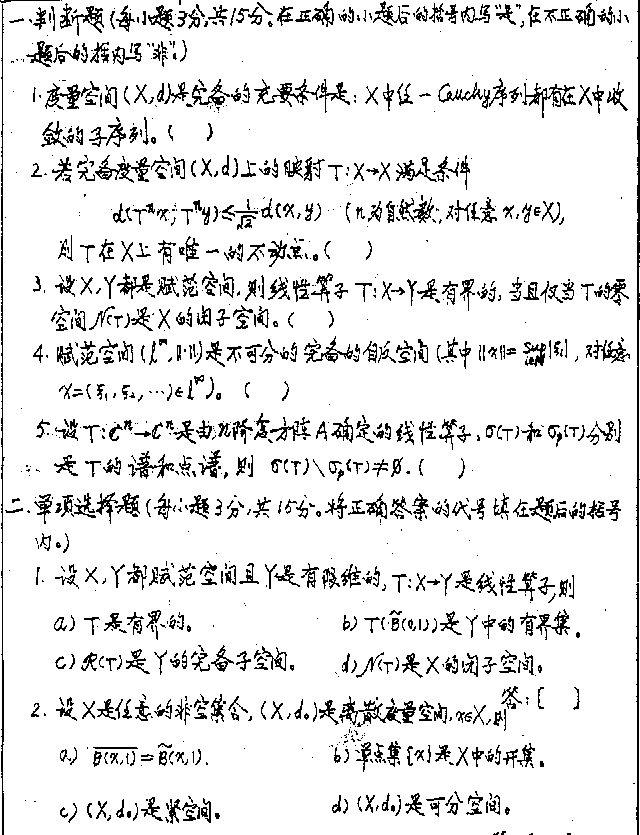 一、判断题(每小题3分,共15分。在正确的小题后的括号内写"是",在不正确的小
题后的括内写"非"。)
1. 度量空间(X,d)是完备的充要条件是:X中任一Cauchy序列都有在X中收
敛的子序列。( )
2. 若完备度量空间(X,d)上的映射T:X→X满足条件
d(Tⁿx,Tⁿy)≤1/√2 d(x,y) (n为自然数,对任意x,y∈X),
则T在X上有唯一的不动点。( )
3. 设X,Y都是赋范空间,则线性算子T:X→Y是有界的,当且仅当T的零
空间N(T)是X的闭子空间。( )
4. 赋范空间(l^∞,‖·‖)是不可分的完备的自反空间(其中‖x‖=sup|ξᵢ|,对任意
x=(ξ₁,ξ₂,…)∈l^∞)。( )
5. 设T:Cⁿ→Cⁿ是由n阶复方阵A确定的线性算子,σ(T)和σp(T)分别
是T的谱和点谱,则 σ(T)\σp(T)≠∅.( )
二、单项选择题(每小题3分,共15分。将正确答案的代号填在题后的括号
内。)
1. 设X,Y都赋范空间且Y是有限维的,T:X→Y是线性算子,则
a) T是有界的。 b) T(B̃(0,1))是Y中的有界集。
c) R(T)是Y的完备子空间。 d) N(T)是X的闭子空间。
答:[ ]
2. 设X是任意的非空集合,(X,d₀)是离散度量空间,x∈X,则
a) \overline{B(x,1)}=B̃(x,1). b) 单点集{x}是X中的开集。
c) (X,d₀)是紧空间。 d) (X,d₀)是可分空间。